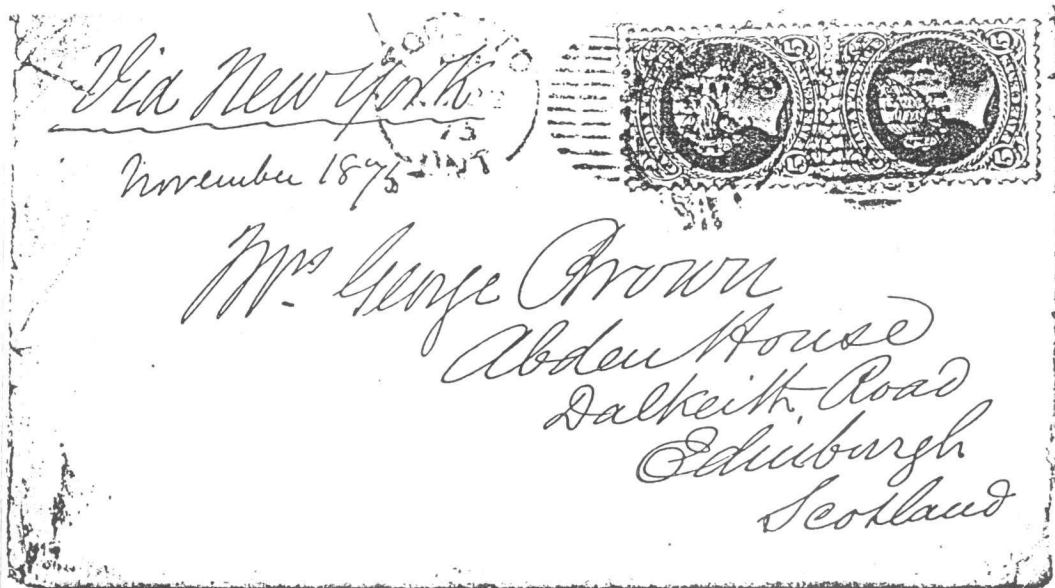 Via New York
November 1873
Mrs George Brown
Abden House
Dalkeith Road
Edinburgh
Scotland